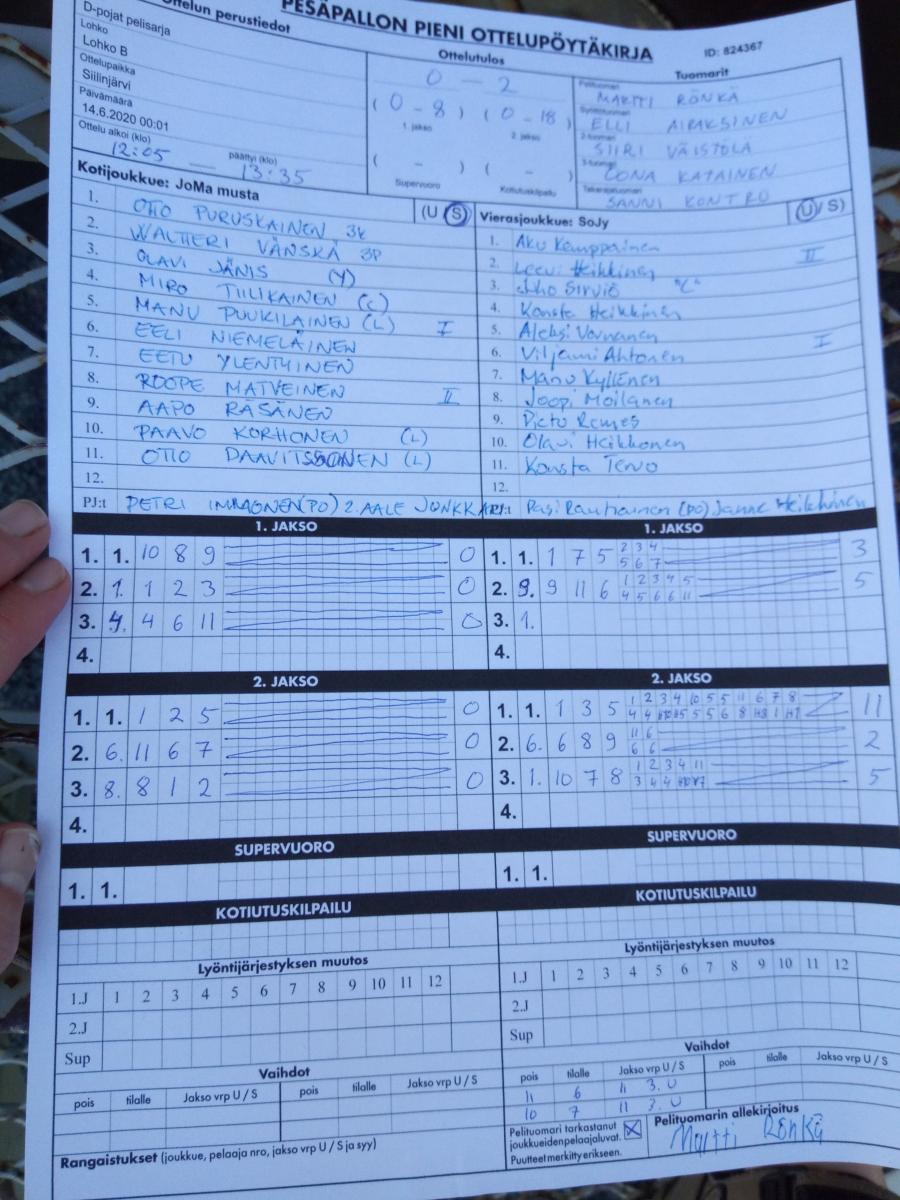 PESÄPALLON PIENI OTTELUPÖYTÄKIRJA
ID: 824367
Ottelun perustiedot
D-pojat pelisarja
Lohko
Lohko B
Ottelupaikka
Siilinjärvi
Päivämäärä
14.6.2020 00:01
Ottelu alkoi (klo) päättyi (klo)
12:05 — 13:35
Ottelutulos
0 – 2
( 0 – 8 ) ( 0 – 18 )
1. jakso 2. jakso
( – ) ( – )
Supervuoro Kotiutuskilpailu
Tuomarit
Pelituomari
MARTTI RÖNKÄ
Syöttötuomari
ELLI AIRAKSINEN
2-tuomari
SIIRI VÄISTÖLÄ
3-tuomari
OONA KATAINEN
Takarajatuomari
SANNI KONTRO
Kotijoukkue: JoMa musta (U S)
1. OTTO PURUSKAINEN 3k
2. WALTTERI VÄNSKÄ 3P
3. OLAVI JÄNIS (Y)
4. MIRO TIILIKAINEN (C)
5. MANU PUUKILAINEN (L) I
6. EELI NIEMELÄINEN
7. EETU YLENTYINEN
8. ROOPE MATVEINEN II
9. AAPO RÄSÄNEN
10. PAAVO KORHONEN (L)
11. OTTO DAAVITSSONEN (L)
12.
PJ:t PETRI (PO) 2. AALE
Vierasjoukkue: SoJy (U/S)
1. Aku Kemppainen II
2. Leevi Heikkinen
3. Juho Sirviö "C"
4. Konsta Heikkinen
5. Aleksi Vornanen I
6. Viljami Ahtonen
7. Manu Kyllönen
8. Joopi Moilanen
9. Pietu Remes
10. Olavi Heikkonen
11. Konsta Tervo
12.
PJ:t Pasi Rautiainen (PO) Janne Heikkinen
1. JAKSO
1. 1. 10 8 9 0
2. 1. 1 2 3 0
3. 4. 4 6 11 0
4.
1. JAKSO
1. 1. 1 7 5 2 3 4 3
5 6 7
2. 9. 9 11 6 1 2 3 4 5 5
4 5 6 6 11
3. 1.
4.
2. JAKSO
1. 1. 1 2 5 0
2. 6. 11 6 7 0
3. 8. 8 1 2 0
4.
2. JAKSO
1. 1. 1 3 5 1 2 3 4 10 5 5 11 6 7 8 11
2. 6. 6 8 9 11 6 2
6 6
3. 1. 10 7 8 1 2 3 4 11 5
3 4 4
4.
SUPERVUORO
1. 1.
SUPERVUORO
1. 1.
KOTIUTUSKILPAILU
KOTIUTUSKILPAILU
Lyöntijärjestyksen muutos
1.J 1 2 3 4 5 6 7 8 9 10 11 12
2.J
Sup
Lyöntijärjestyksen muutos
1.J 1 2 3 4 5 6 7 8 9 10 11 12
2.J
Sup
Vaihdot
pois tilalle Jakso vrp U / S pois tilalle Jakso vrp U / S
Vaihdot
pois tilalle Jakso vrp U / S pois tilalle Jakso vrp U / S
11 6 II 3. U
10 7 II 3. U
Rangaistukset (joukkue, pelaaja nro, jakso vrp U / S ja syy)
Pelituomari tarkastanut
joukkueidenpelaajaluvat.
Puutteet merkitty erikseen.
Pelituomarin allekirjoitus
Martti Rönkä